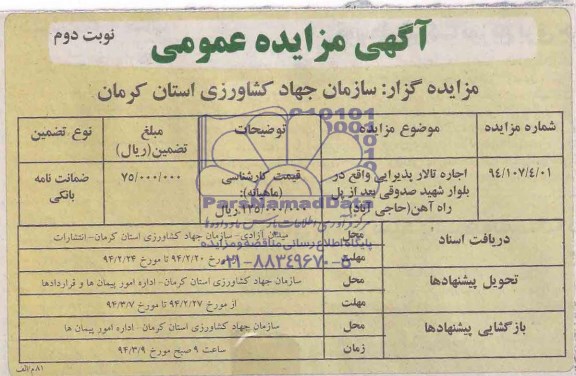 آگهی مزایده عمومی
نوبت دوم
مزایده گزار: سازمان جهاد کشاورزی استان کرمان
شماره مزایده
موضوع مزایده
توضیحات
مبلغ
تضمین(ریال)
نوع تضمین
۹۴/۱۰۷/۴/۰۱
اجاره تالار پذیرایی واقع در
بلوار شهید صدوقی بعد از پل
راه آهن(حاجی آباد)
قیمت کارشناسی
(ماهیانه):
ریال
۷۵/۰۰۰/۰۰۰
ضمانت نامه
بانکی
دریافت اسناد
محل
میدان آزادی-سازمان جهاد کشاورزی استان کرمان-انتشارات
مهلت
از مورخ ۹۴/۲/۲۰ تا مورخ ۹۴/۲/۲۴
تحویل پیشنهادها
محل
سازمان جهاد کشاورزی استان کرمان- اداره امور پیمان ها و قراردادها
مهلت
از مورخ ۹۴/۲/۲۷ تا مورخ ۹۴/۳/۷
بازگشایی پیشنهادها
محل
سازمان جهاد کشاورزی استان کرمان- اداره امور پیمان ها
زمان
ساعت ۹ صبح مورخ ۹۴/۳/۹
۸۱م/الف
ParsNamadData
پایگاه اطلاع رسانی مناقصه و مزایده
۰۲۱-۸۸۳۴۹۶۷۰-۵